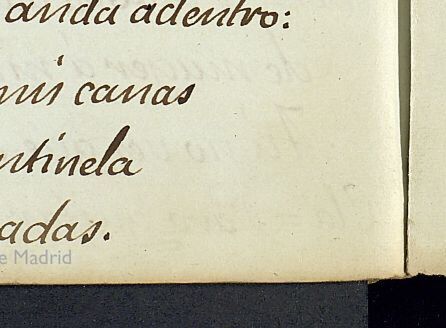 anda adentro:
mis canas
ntinela
adas.
e Madrid